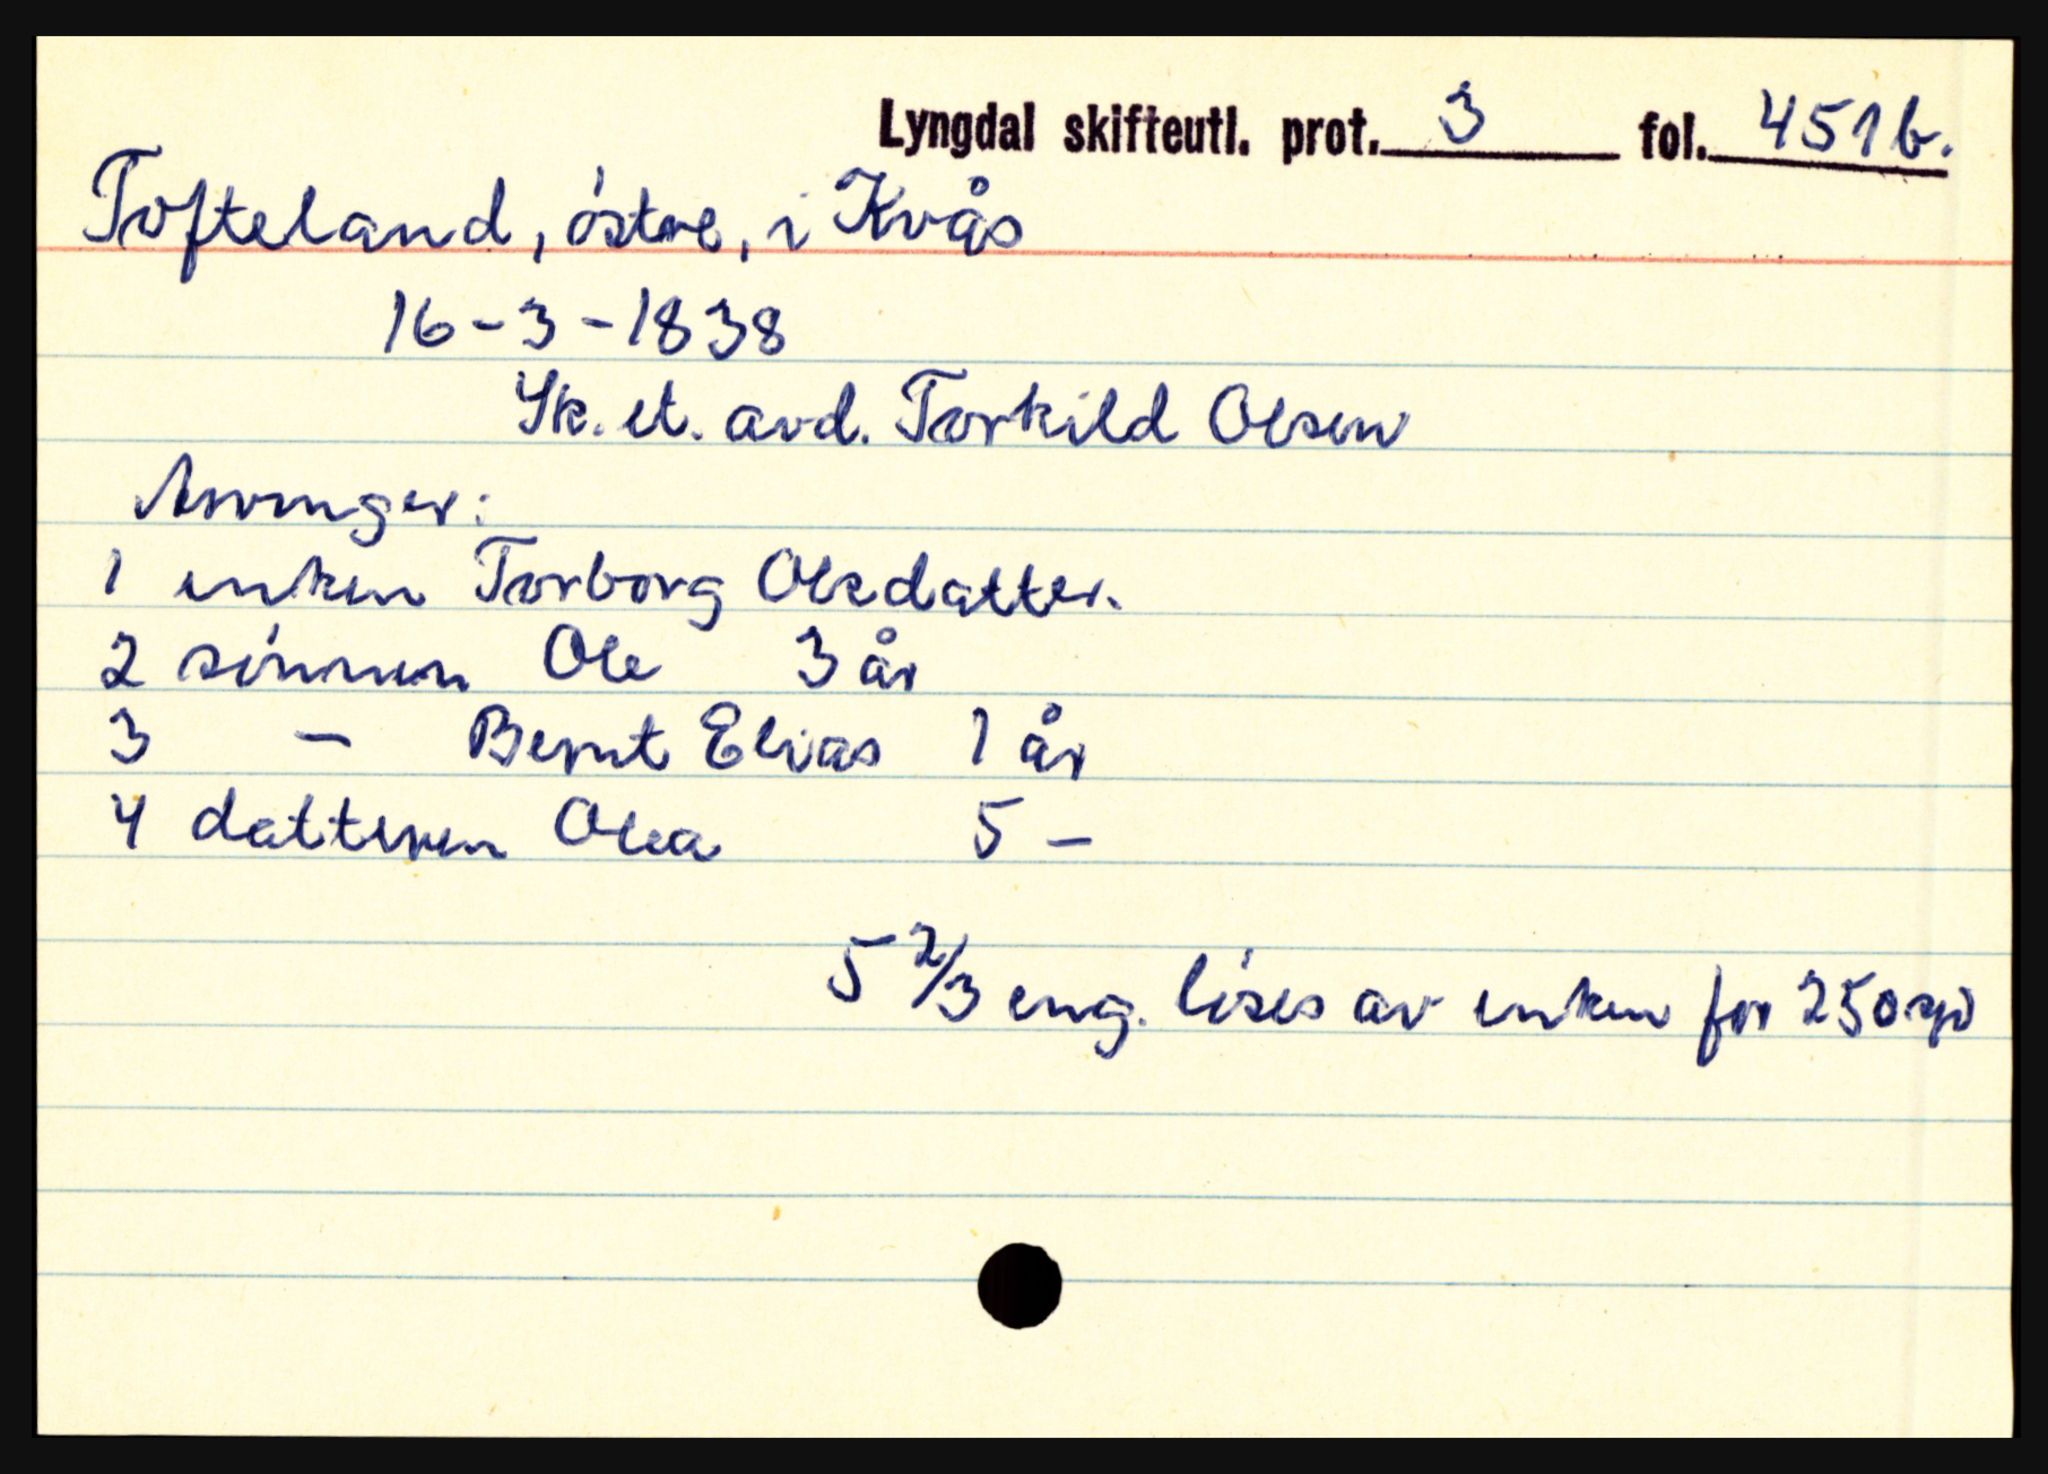 Lyngdal skifteutl. prot. 3 fol. 451b.
Tofteland, östre, i Kvås
16-3-1838
Sk. et. avd. Torkild Olsen
Arvinger:
1 enken Torborg Olsdatter.
2 sönnen Ole 3 år
3 - Bernt Elias 1 år
4 datteren Olea 5 -
5 2/3 eng. löses av enken for 250 spd